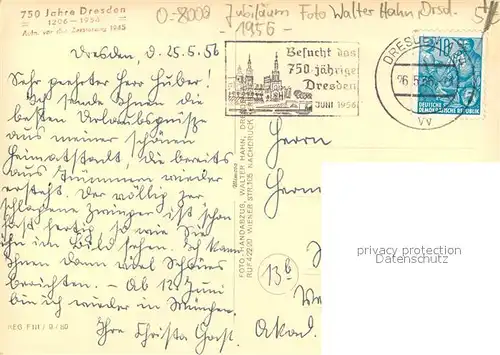 750 Jahre Dresden
1206 - 1956
Aufn. vor der Zerstörung 1945
0-8000 Jubiläum Foto Walter Hahn, Drsd.
- 1956 -
Besucht das
750-jährige
Dresden
JUNI 1956
DRESDEN
26.5.56
DEUTSCHE
DEMOKRATISCHE REPUBLIK
Dresden, d. 25.5.56
Sehr geehrter Herr Huber!
Ich sende Ihnen die
besten Urlaubsgrüße
aus meiner schönen
Heimatstadt, die bereits
aus Trümmern wieder
ersteht. Der völlig zer
schlagene Zwinger ist schon
fast fertig so wie Sie
ihn im Bild sehen. Ich kann
Ihnen dann viel Schönes
berichten. - Ab 12. Juni
bin ich wieder in München.
Ihre Christa Gast.
REG F 111 / 9 / 60
FOTO u. HANDABZUG, WALTER HAHN, DRE
RUF 42220 WIENER STR. 105 NACHDRUCK
Herrn
Herm
13b
Akad.
privacy protection
Datenschutz